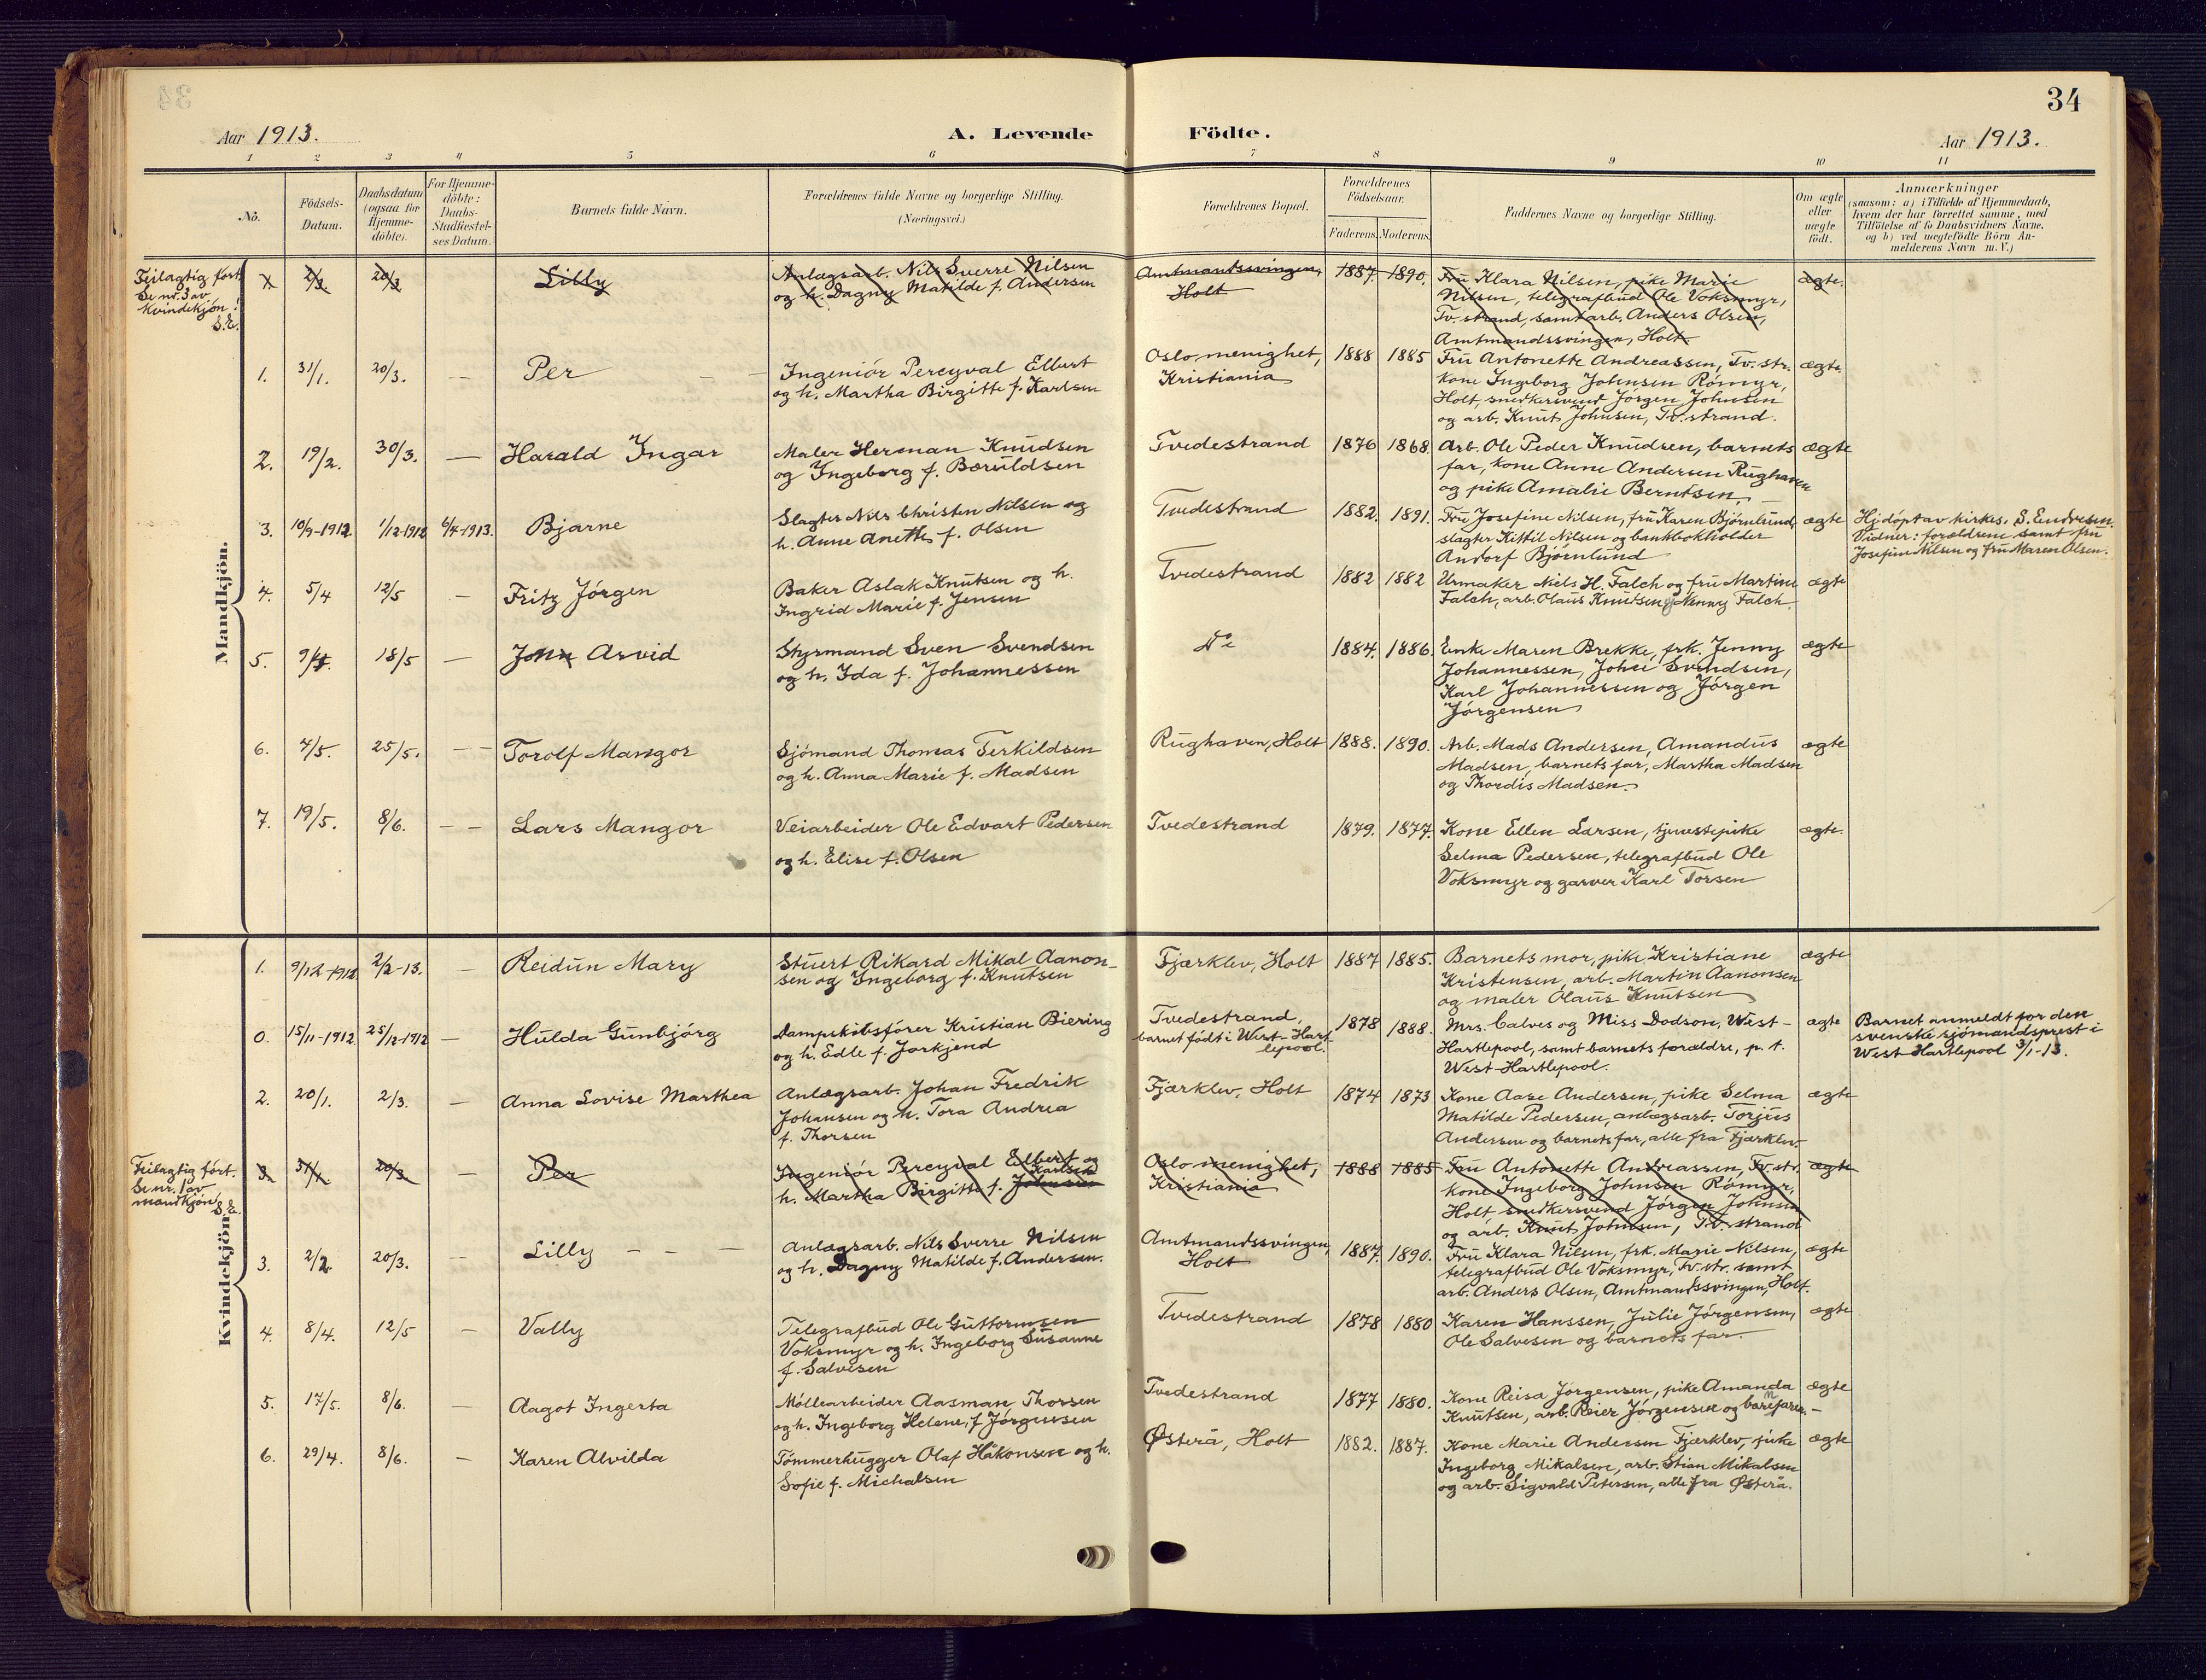 34
Aar 1913.
A. Levende Födte.
Aar 1913.
1 2 3 4 5 6 7 8 9 10 11
No.
Födsels-
Datum.
Daabsdatum
(ogsaa for
Hjemme-
döbte).
For Hjemme-
döbte:
Daabs-
Stadfæstel-
ses Datum.
Barnets fulde Navn.
Forældrenes fulde Navne og borgerlige Stilling.
(Næringsvei.)
Forældrenes Bopæl.
Forældrenes
Födselsaar.
Faderens. Moderens.
Faddernes Navne og borgerlige Stilling.
Om ægte
eller
uægte
födt.
Anmærkninger
(saasom: a) i Tilfælde af Hjemmedaab,
hvem der har forrettet samme, med
Tilföielse af to Daabsvidners Navne,
og b) ved uægtefödte Börn An-
melderens Navn m. V.)
Mandkjön.
Feilagtig fört
Se nr. 3 av
kvindekjön!
S.E.
1 2/3 20/3 Lilly
Anlægsarb. Nils Sverre Nilsen
og h. Dagny Matilde f. Andersen
Amtmantssvingen,
Holt
1887 1890.
Fru Klara Nilsen, pike Marie
Nilsen, telegrafbud Ole Voksmyr,
Tv.strand, samt arb. Anders Olsen,
Amtmandssvingen, Holt.
ægte.
1. 31/1. 20/3. — Per — —
Ingeniör Percyval Elbert
og h. Martha Birgitte f. Karlsen
Oslo menighet,
Kristiania
1888 1885
Fru Antonette Andreassen, Tv.str.
kone Ingeborg Johnsen Römyr,
Holt, snedkersvend Jörgen Johnsen
og arb. Knut Johnsen, Tv.strand.
ægte.
2. 19/2. 30/3. — Harald Ingar
Maler Herman Knudsen
og Ingeborg f. Boruldsen
Tvedestrand
1876 1868.
Arb. Ole Peder Knudsen, barnets
far, kone Anne Andersen Rughaven
og pike Amalie Berntsen. —
ægte
3. 10/9-1912 1/12-1912 6/4-1913. Bjarne
Slagter Nils Christen Nilsen og
h. Anne Anette f. Olsen
Tvedestrand
1882. 1891.
Fru Josefine Nilsen, fru Karen Björnlund,
slagter Kittil Nilsen og bankbokholder
Andorf Björnlund
ægte
Hjdöpt av kirkes. S. Endresen.
Vidner: forældrene samt fru
Josefine Nilsen og fru Maren Olsen.
4. 5/4 12/5 — Fritz Jörgen
Baker Aslak Knutsen og h.
Ingrid Marie f. Jensen
Tvedestrand
1882 1882
Urmaker Niels H. Falch og fru Martine
Falch, arb. Olaus Knutsen, Nenny Falch.
ægte
5. 9/4. 18/5 — John Arvid
Styrmand Sven Svendsen
og h. Ida f. Johannessen
Do
1884. 1886.
Enke Maren Brekke, frk. Jenny
Johannessen, Svendsen,
Karl Johannessen og Jörgen
Jörgensen
ægte
6. 4/5. 25/5. — — Torolf Mangor
Sjömand Thomas Terkildsen
og h. Anna Marie f. Madsen
Rughaven, Holt
1888. 1890.
Arb. Mads Andersen, Amandus
Madsen, barnets far, Martha Madsen
og Thordis Madsen.
ægte
7. 19/5. 8/6. — — Lars Mangor
Veiarbeider Ole Edvart Pedersen
og h. Elise f. Olsen
Tvedestrand
1879. 1877.
Kone Ellen Larsen, tjenestepike
Selma Pedersen, telegrafbud Ole
Voksmyr og garver Karl Torsen
ægte.
Kvindekjön
1. 9/12-1912. 2/2-13. — Reidun Mary
Stuert Rikard Mikal Aanon-
sen og Ingeborg f. Knutsen
Fjærklev, Holt
1887 1885.
Barnets mor, pike Kristiane
Kristensen, arb. Martin Aanonsen
og maler Olaus Knutsen
ægte
0. 15/11-1912. 25/12-1912 — Hulda Gunbjörg
Dampskibsförer Kristian Biering
og h. Edle f. Jorkjend
Tvedestrand,
barnet födt i West-Hart
lepool.
1878 1888.
Mrs. Calves og Miss Dodson, West-
Hartlepool, samt barnets forældre, p. t.
West-Hartlepool.
ægte
Barnet anmeldt for den
svenske sjömandsprest i
West Hartlepool 3/1-13.
2. 20/1. 2/3. — Anna Lovise Marthea
Anlægsarb. Johan Fredrik
Johansen og h. Tora Andrea
f. Thorsen
Fjærklev, Holt
1874 1873
Kone Aase Andersen, pike Selma
Matilde Pedersen, anlægsarb. Torjus
Andersen og barnets far, alle fra Fjærklev.
ægte
Feilagtig fört.
Se nr. 1 av
mandkjön! S.E.
3. 31/1. 20/3 — Per
Ingeniör Percyval Elbert og
h. Martha Birgitte f. Johnsen Karlsen
Oslo menighet,
Kristiania
1888 1885
Fru Antonette Andreassen, Tv.str.
kone Ingeborg Johnsen Römyr,
Holt snedkersvend Jörgen Johnsen
og arb. Knut Johnsen, Tv.strand
ægte
3. 2/2. 20/3. — Lilly — — —
Anlægsarb. Nils Sverre Nilsen
og h. Dagny Matilde f. Andersen.
Amtmandssvingen,
Holt
1887. 1890.
Fru Klara Nilsen, frk. Marie Nilsen,
telegrafbud Ole Voksmyr, Tv.str. samt
arb. Anders Olsen, Amtmandssvingen, Holt.
ægte
4. 8/4. 12/5 — Vally
Telegrafbud Ole Guttormsen
Voksmyr og h. Ingeborg Susanne
f. Salvesen
Tvedestrand
1878 1880
Karen Hanssen, Julie Jörgensen,
Ole Salvesen og barnets far.
ægte
5. 17/5. 8/6. — Aagot Ingerta
Möllearbeider Aasman Thorsen
og h. Ingeborg Helene, f. Jörgensen
Tvedestrand
1877 1880.
Kone Reisa Jörgensen, pike Amanda
Knutsen, arb. Reier Jörgensen og
ægte
6. 29/4. 8/6. — Karen Alvilda
Tömmerhugger Olaf Håkonsen og h.
Sofie f. Michalsen
Østerå, Holt
1882. 1887.
Kone Marie Andersen Fjærklev, pike
Ingeborg Mikalsen, arb. Stian Mikalsen
og arb. Sigvald Petersen, alle fra Østerå.
ægte